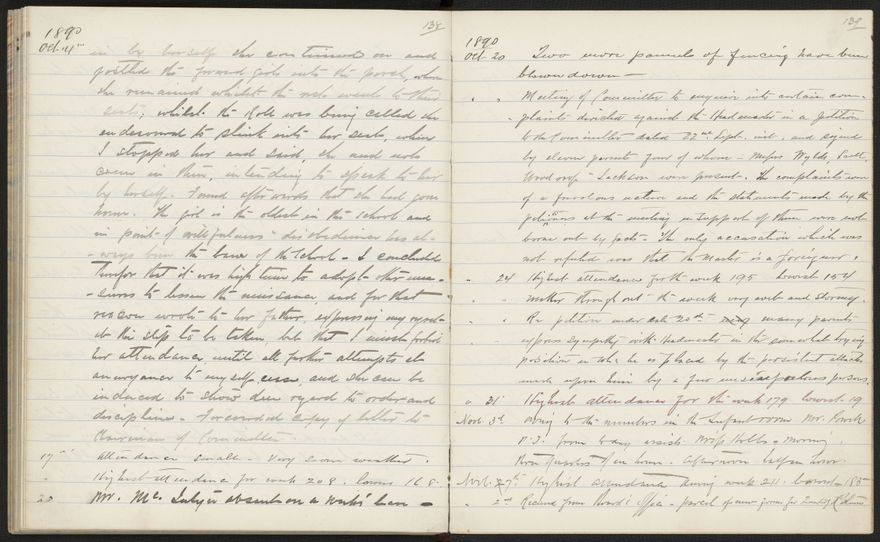 138
1890
Oct. 14th in by herself she continued on and
jostled the forward girls into the porch, where
she remained whilst the rest went to their
seats; whilst the Roll was being called she
endeavored to slink into her seat, when
I stopped her and said, she need not
come in then, intending to speak to her
by herself. Found afterwards that she had gone
home. The girl is the oldest in the school and
in point of willfulness & disobedience has al-
-ways been the bane of the School - I concluded
therefor that it was high time to adopt other mea-
-sures to lessen the nuisance, and for that
reason wrote to her father, expressing my regret
at the step to be taken, but that I must forbid
her attendance until all further attempts at
annoyance to myself cease, and she can be
induced to show due regard to order and
discipline - Forwarded copy of letter to
Chairman of Committee.
17th Attendance small - very stormy weather.
" Highest attendance for week 208. Lowest 168.
20 Mr. Mc. absent on a week's leave -
139
1890
Oct. 20 Two more pannels of fencing have been
blown down -
" " Meeting of Committee to enquire into certain com-
- plaints directed against the Headmaster in a petition
to the Committee dated 22nd Sept. inst. and signed
by eleven parents four of whom - Messrs Wylds,
Woodroof & Jackson were present. The complaints were
of a frivolous nature and the statements made by the
petitioners at the meeting in support of them were not
borne out by facts - The only accusation which was
not refuted was that the Master is a foreigner.
" 24 Highest attendance for the week 195 Lowest 154
" " weather throughout the week very wet and stormy.
" " Re petition under date 20th many parents
express sympathy with Headmaster in the somewhat trying
position in which he is placed by the persistent attacks
made upon him by a few unscrupulous persons.
" 31 Highest attendance for the week 179 lowest 19
Nov. 3rd Owing to the numbers in the Infant room Mr.
P.T. from to-day assists Miss Hobbs - Morning,
Three quarters of an hour - afternoon half an hour.
Nov. 7th Highest attendance during week 211. Lowest 185
" Received from Board's Office - parcel of new forms for